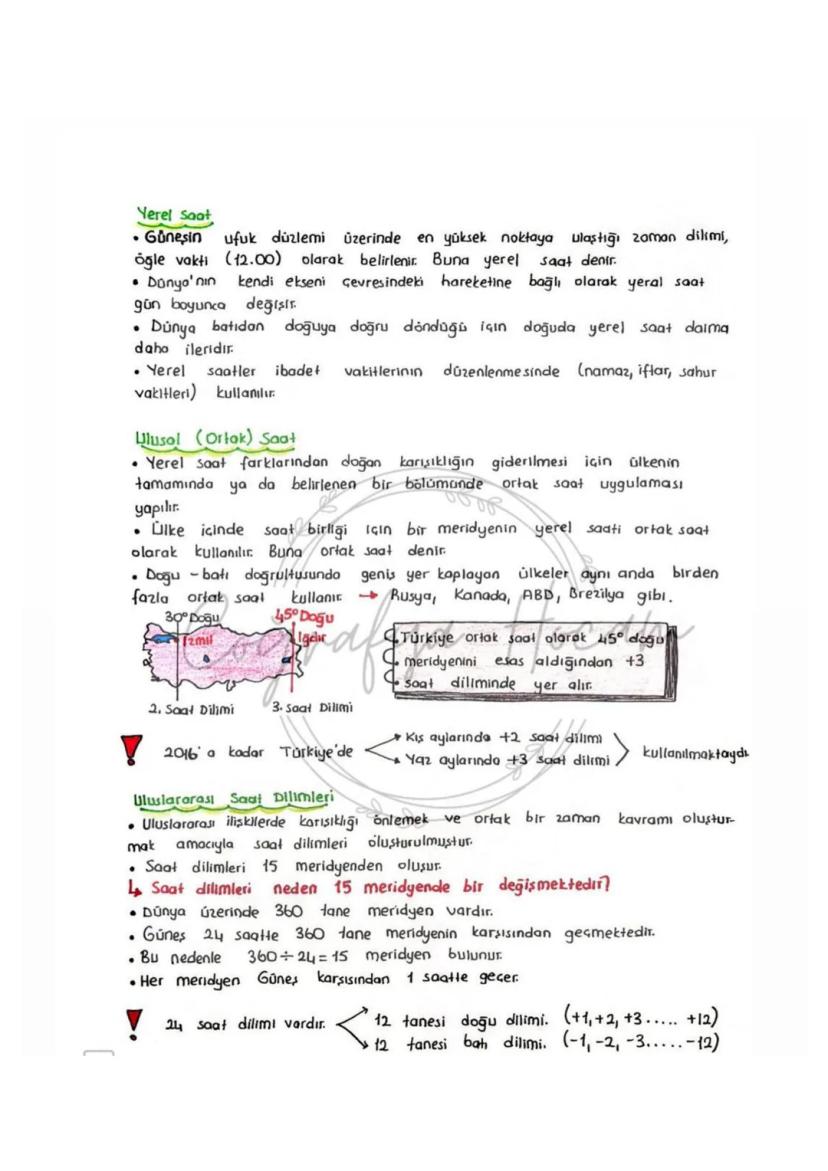 Yerel Saat
• Güneşin ufuk düzlemi üzerinde en yüksek noktaya ulaştığı zaman dilimi,
öğle vakti (12.00) olarak belirlenir. Buna yerel saat denir.
• Dünya'nın kendi ekseni çevresindeki hareketine bağlı olarak yeral saat
gün boyunca değişir.
• Dünya batıdan doğuya doğru döndüğü için doğuda yerel saat daima
daha ileridir.
• Yerel saatler ibadet vakitlerinin düzenlenmesinde (namaz, iftar, sahur
vakitleri) kullanılır.
Ulusal (Ortak) Saat
• Yerel saat farklarından doğan karışıklığın giderilmesi için ülkenin
tamamında ya da belirlenen bir bölümünde ortak saat uygulaması
yapılır.
• Ülke içinde saat birliği için bir meridyenin yerel saati ortak saat
olarak kullanılır. Buna ortak saat denir.
• Doğu - batı doğrultusunda geniş yer kaplayan ülkeler aynı anda birden
fazla ortak saat kullanır. → Rusya, Kanada, ABD, Brezilya gibi.
30° Doğu 45° Doğu
İzmit Iğdır
2. Saat Dilimi 3. Saat Dilimi
Türkiye ortak saat olarak 45° doğu
meridyenini esas aldığından +3
saat diliminde yer alır.
Coğrafya Hocam
! 2016'a kadar Türkiye'de
Kış aylarında +2 saat dilimi
Yaz aylarında +3 saat dilimi
kullanılmaktaydı
Uluslararası Saat Dilimleri
• Uluslararası ilişkilerde karışıklığı önlemek ve ortak bir zaman kavramı oluştur-
mak amacıyla saat dilimleri oluşturulmuştur.
• Saat dilimleri 15 meridyenden oluşur.
↳ Saat dilimleri neden 15 meridyende bir değişmektedir?
• Dünya üzerinde 360 tane meridyen vardır.
• Güneş 24 saatte 360 tane meridyenin karşısından geçmektedir.
• Bu nedenle 360÷24=15 meridyen bulunur.
• Her meridyen Güneş karşısından 1 saatte geçer.
! 24 saat dilimi vardır.
12 tanesi doğu dilimi. (+1,+2,+3..... +12)
12 tanesi batı dilimi. (-1,-2,-3.....-12)